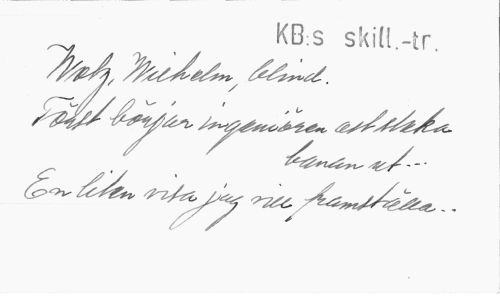 KB:s skill.-tr.
Wolz, Wilhelm, blind.
Först börjar ingeniören att staka
banan ut...
En liten visa jag vill framställa..